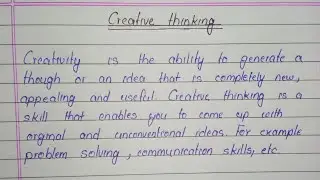 Creative thinking
Creativity is the ability to generate a
though or an idea that is completely new,
appealing and useful. Creative thinking is a
skill that enables you to come up with
orginal and unconventional ideas. For example
problem solving, communication skills, etc